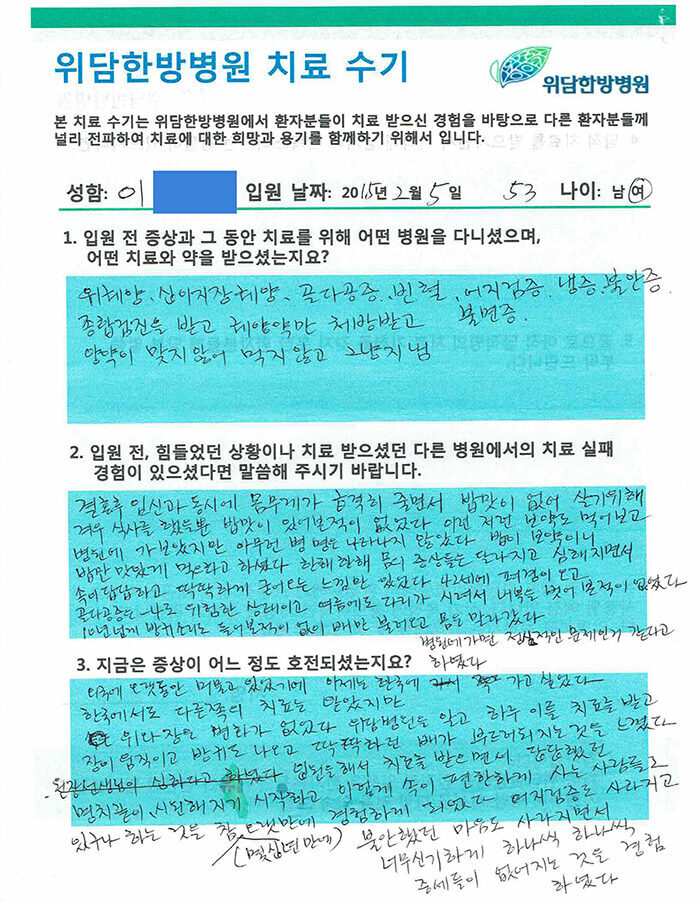 위담한방병원 치료 수기
위담한방병원
본 치료 수기는 위담한방병원에서 환자분들이 치료 받으신 경험을 바탕으로 다른 환자분들께
널리 전파하여 치료에 대한 희망과 용기를 함께하기 위해서 입니다.
성함: 이 입원 날짜: 2015년 2월 5일 53 나이: 남 여
1. 입원 전 증상과 그 동안 치료를 위해 어떤 병원을 다니셨으며,
어떤 치료와 약을 받으셨는지요?
위궤양, 십이지장궤양, 골다공증, 빈혈, 어지럼증, 냉증, 불안증
불면증.
종합검진을 받고 궤양약만 처방받고
양약이 맞지 않어 먹지 않고 그냥 지냄
2. 입원 전, 힘들었던 상황이나 치료 받으셨던 다른 병원에서의 치료 실패
경험이 있으셨다면 말씀해 주시기 바랍니다.
결혼후 임신과 동시에 몸무게가 급격히 줄면서 밥맛이 없어 살기위해
겨우 식사를 했을뿐 밥맛이 있어본적이 없었다 이런 저런 보약도 먹어보고
병원에 가보았지만 아무런 병명은 나타나지 않았다 밥이 보약이니
밥만 맛있게 먹으라고 하였다 한해 한해 몸의 증상들은 달라지고 심해지면서
속이 답답하고 딱딱하게 굳어오는 느낌만 있었다 42세에 폐경이 오고
골다공증은 나로 위험한 상태이고 여름에도 다리가 시려서 내복을 벗어 본적이 없었다
10년넘게 방귀소리도 들어보적이 없이 배만 불러오고 몸은 말라갔다
병원에 가면 정신적인 문제인거 같다고
하였다
3. 지금은 증상이 어느 정도 호전되셨는지요?
외국에 오랫동안 머물고 있었기에 이제는 한국에 가고 싶었다
한국에서도 다른쪽의 치료는 받았지만
위와 장은 변화가 없었다 위담병원을 알고 하루 이틀 치료를 받고
장이 움직이고 방귀도 나오고 딱딱하던 배가 부드러워지는 것을 느꼈다
원장선생님이 심하다고 하였다 입원을 해서 치료를 받으면서 답답했던
명치끝이 시원해지기 시작하고 이렇게 속이 편한하게 사는 사람들도
있구나 하는 것을 참 오랫만에 경험하게 되었다 어지럼증도 사라지고
(몇십년 만에) 불안했던 마음도 사라지면서
너무 신기하게 하나씩 하나씩
증세들이 없어지는 것을 경험
하였다